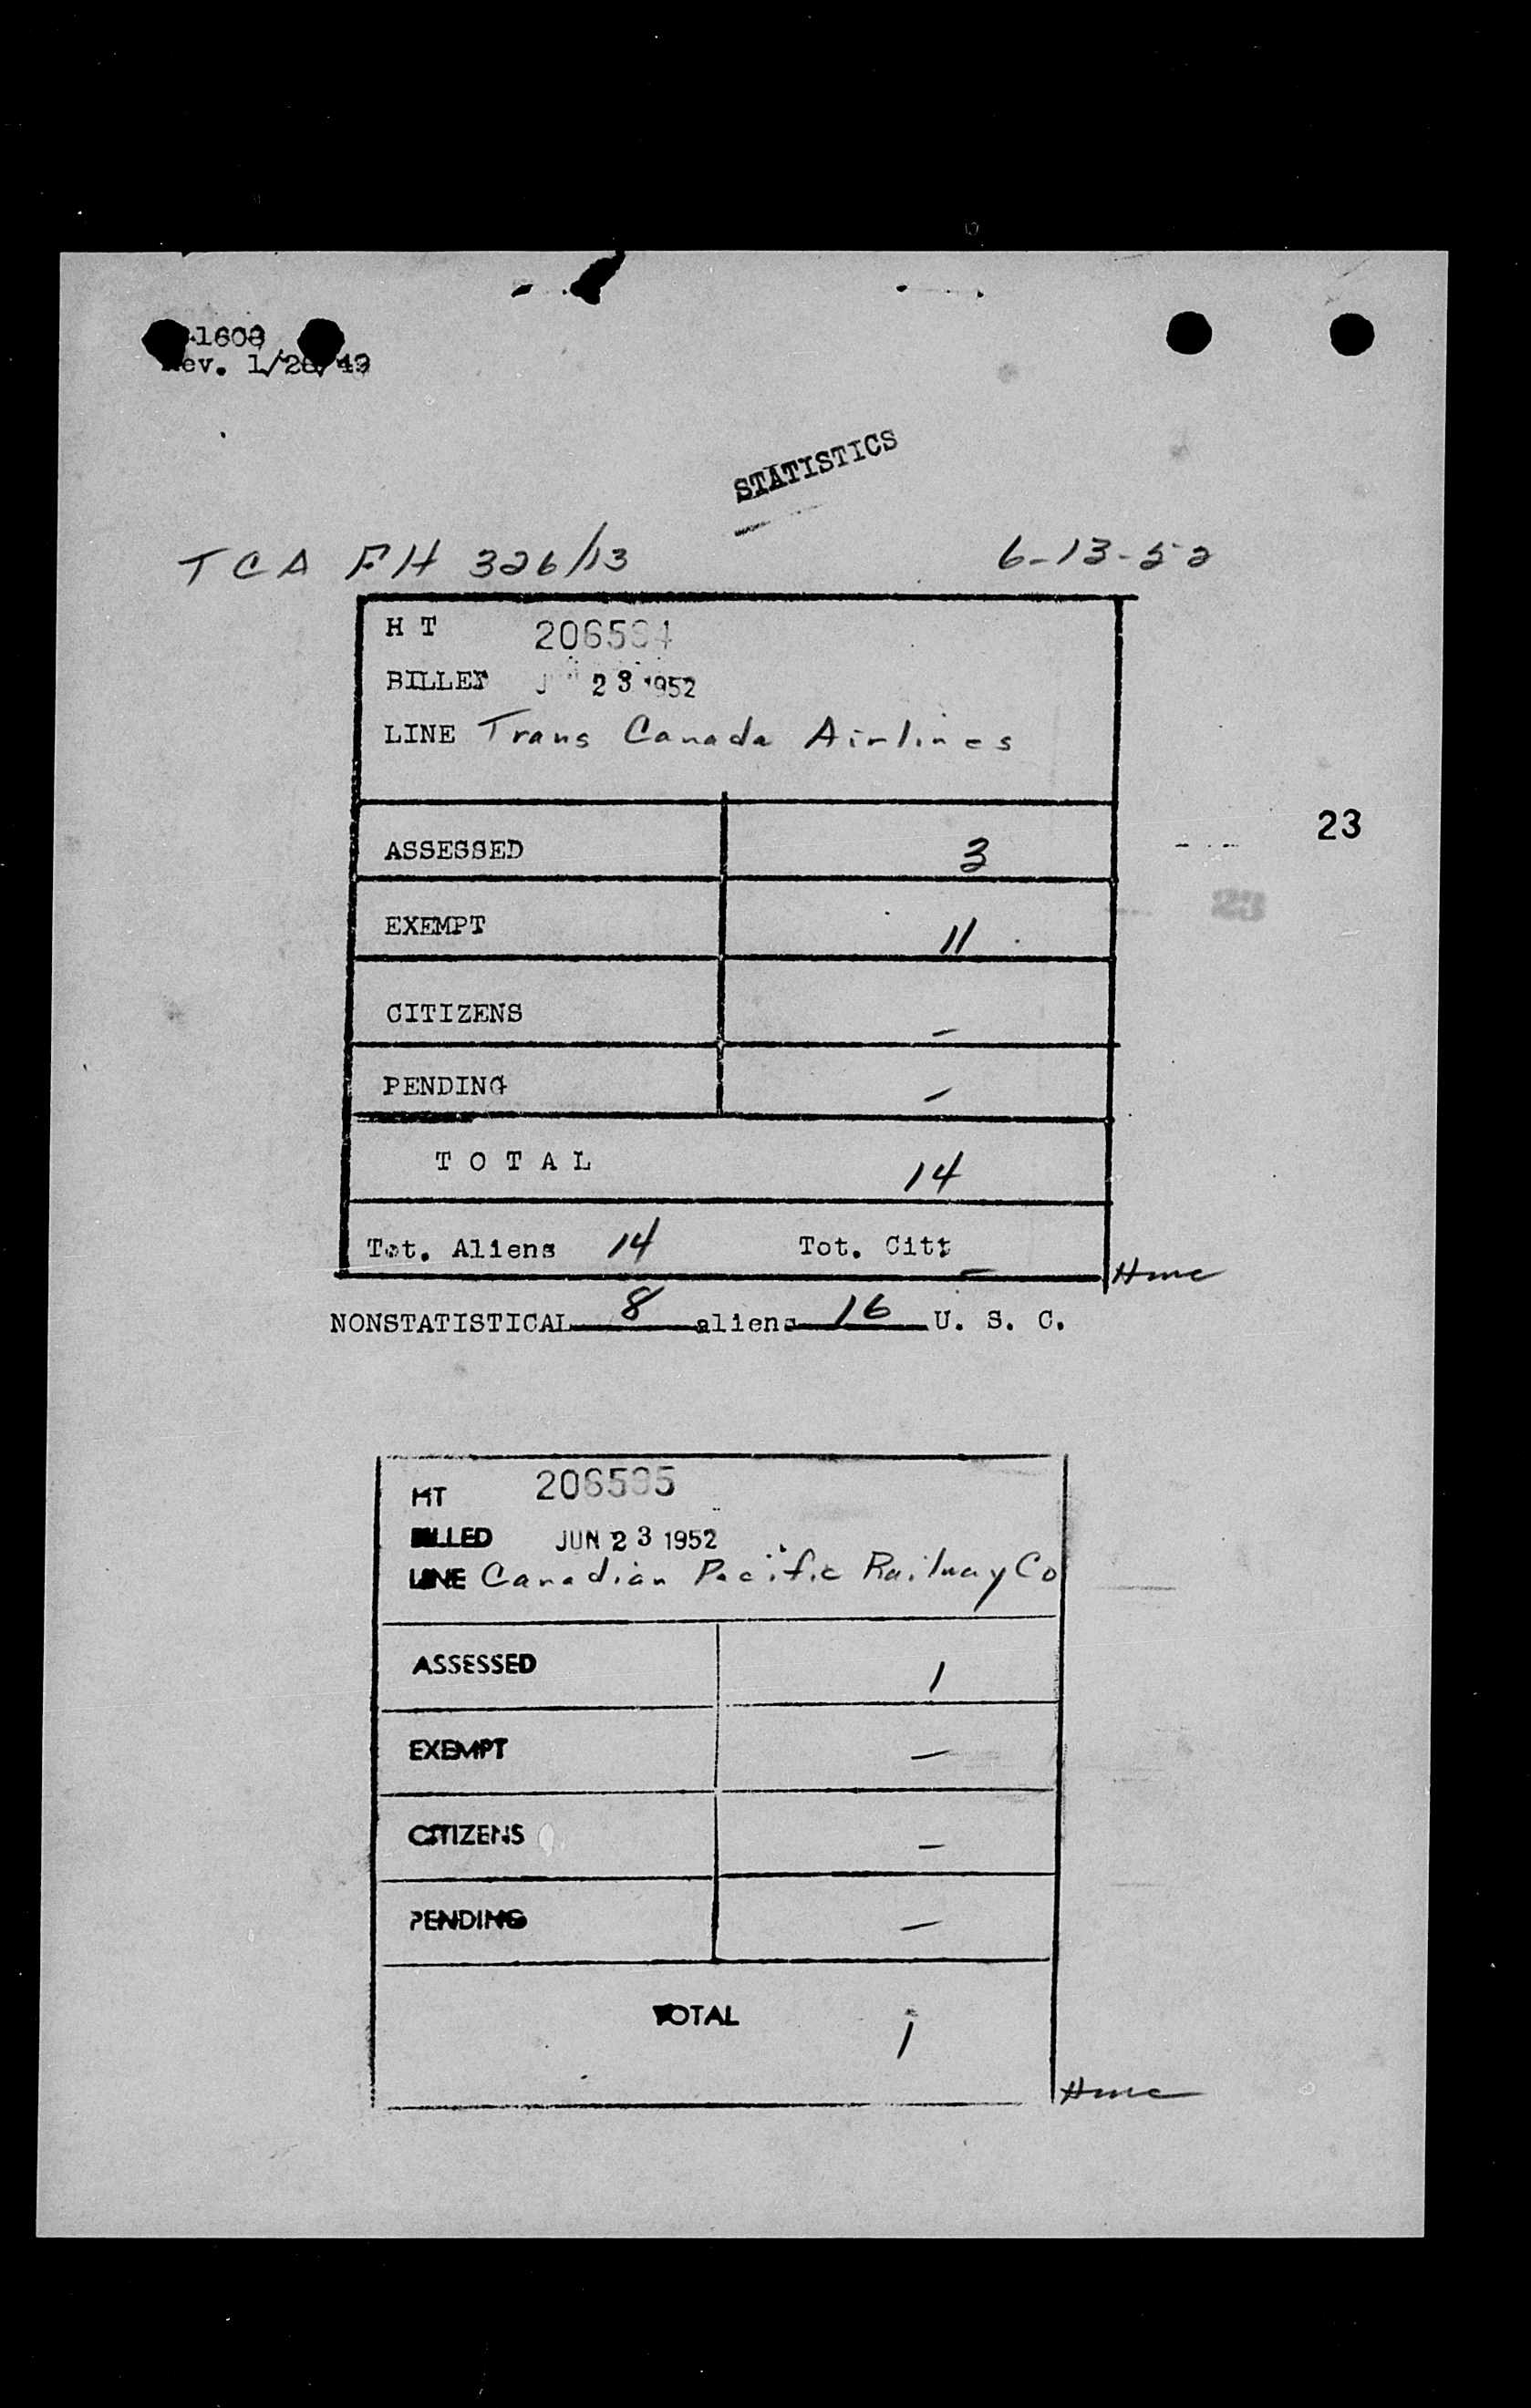 1608
Rev. 1/26/49
STATISTICS
TCA FH 326/13 6-13-52
H T 206594
BILLED 23 1952
LINE Trans Canada Airlines
ASSESSED 3
23
EXEMPT 11
23
CITIZENS –
PENDING –
T O T A L 14
Tot. Aliens 14 Tot. Citz –
Hmc
NONSTATISTICAL 8 aliens 16 U. S. C.
HT 206595
BILLED JUN 23 1952
LINE Canadian Pacific Railway Co
ASSESSED 1
EXEMPT –
CITIZENS –
PENDING –
TOTAL 1
Hmc